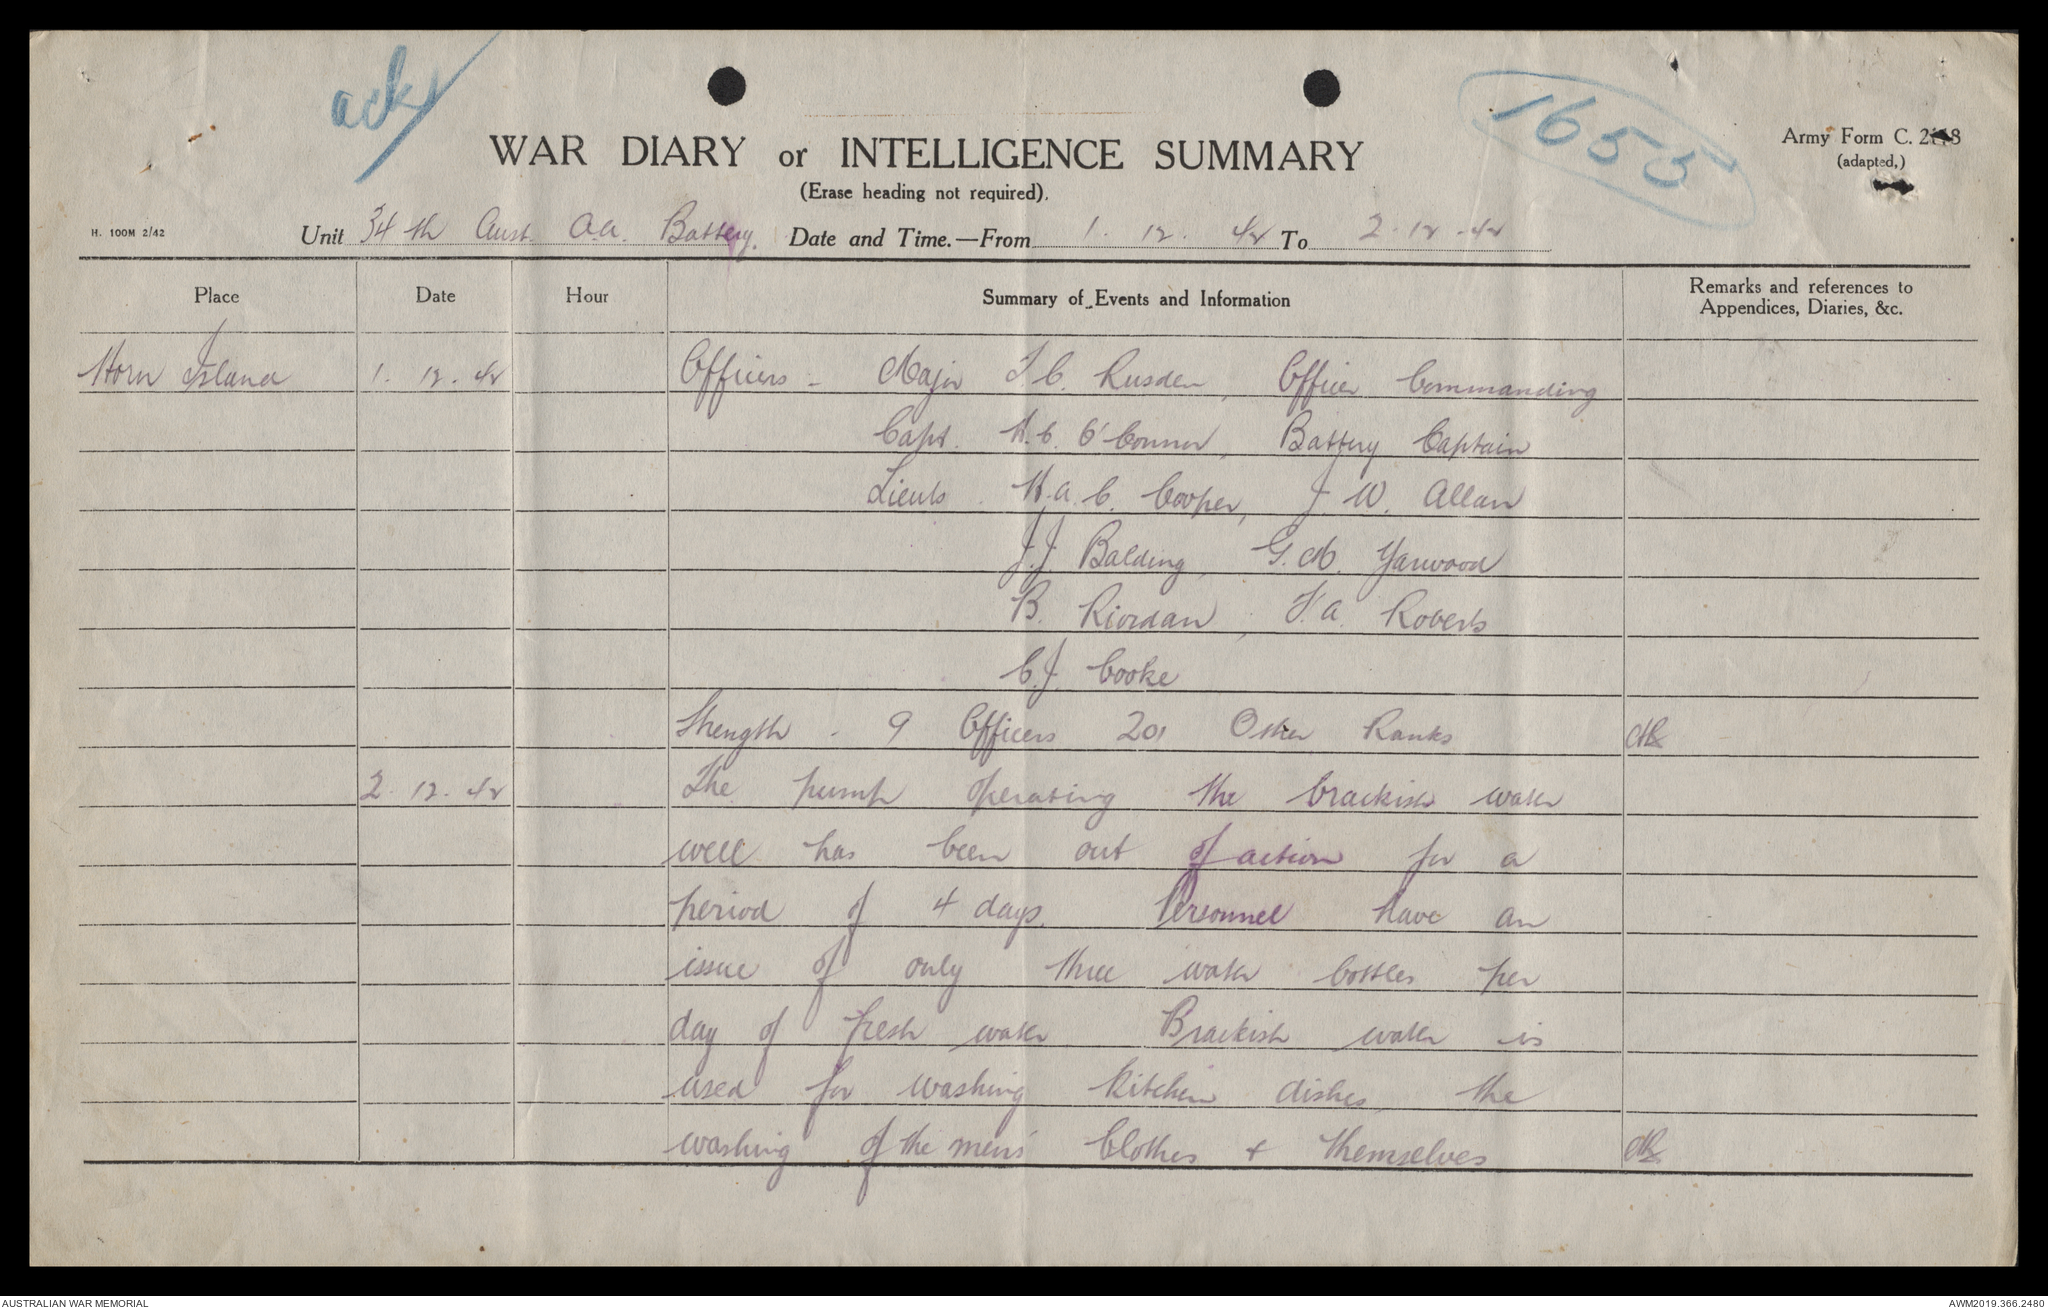 ack
1655
WAR DIARY or INTELLIGENCE SUMMARY
Army Form C. 2118
(adapted,)
(Erase heading not required).
H. 100M 2/42
Unit 34th Aust. A.A. Battery. Date and Time.—From 1. 12. 42 To 2.12.42
Place Date Hour Summary of Events and Information Remarks and references to
Appendices, Diaries, &c.
Horn Island 1. 12. 42 Officers - Major F.C. Rusden, Officer Commanding
Capt. H.C. O'Connor, Battery Captain
Lieuts. H.A.C. Cooper, J.W. Allan
J.J. Balding, G.M. Yarwood
B. Riordan, F.A. Roberts
C.J. Cooke
Strength - 9 Officers 201 Other Ranks
2. 12. 42 The pump operating the brackish water
well has been out of action for a
period of 4 days. Personnel have an
issue of only three water bottles per
day of fresh water Brackish water is
used for washing kitchen dishes, the
washing of the men's clothes & themselves
AUSTRALIAN WAR MEMORIAL
AWM2019.366.2480